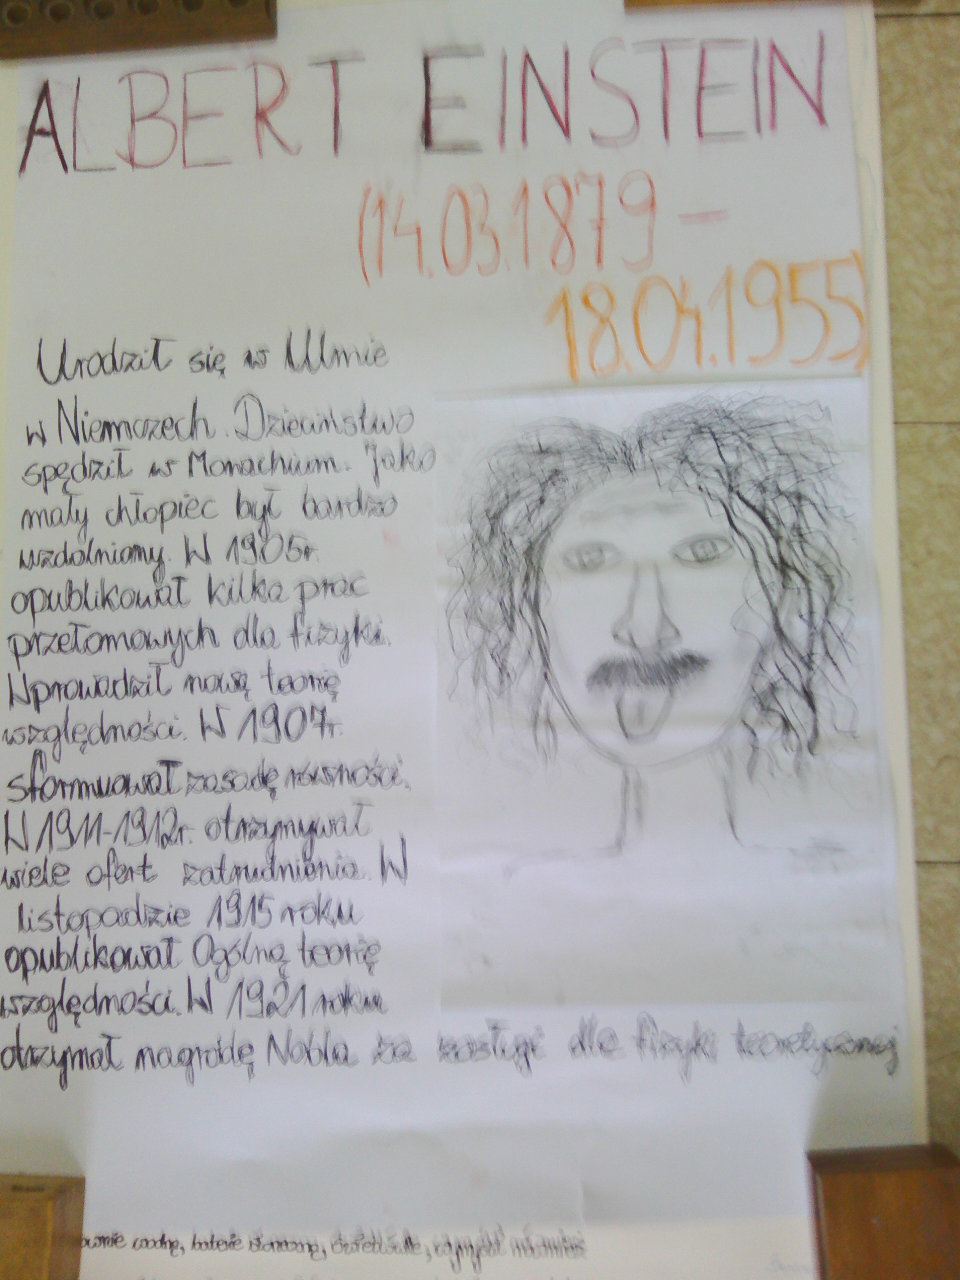 ALBERT EINSTEIN
(14.03.1879 –
18.04.1955)
Urodził się w Ulmie
w Niemczech. Dzieciństwo
spędził w Monachium. Jako
mały chłopiec był bardzo
uzdolniony. W 1905r.
opublikował kilka prac
przełomowych dla fizyki.
Wprowadził nową teorię
względności. W 1907r.
sformuował zasadę równości.
W 1911-1912r. otrzymywał
wiele ofert zatrudnienia. W
listopadzie 1915 roku
opublikował Ogólną teorię
względności. W 1921 roku
otrzymał nagrodę Nobla za zasługi dla fizyki teoretycznej
wodne, baterie słoneczne,